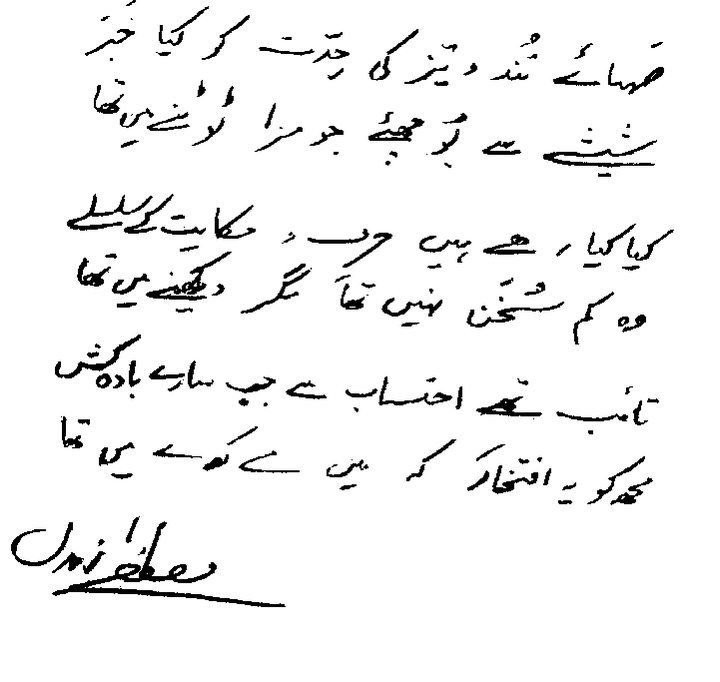 صَہبائے تُند و تیز کی حِدّت کو کیا خَبَر
شیشے سے پُوچھئے جو مزا ٹُوٹنے میں تھا
کیا کیا رہے ہیں حرف و حکایت کے سلسلے
وہ کم سُخَن نہیں تھا مگر دیکھنے میں تھا
تائب تھے احتساب سے جب سارے بادہ کش
مجھ کو یہ افتخار کہ میں مے کدے میں تھا
مصطفیٰ زیدی